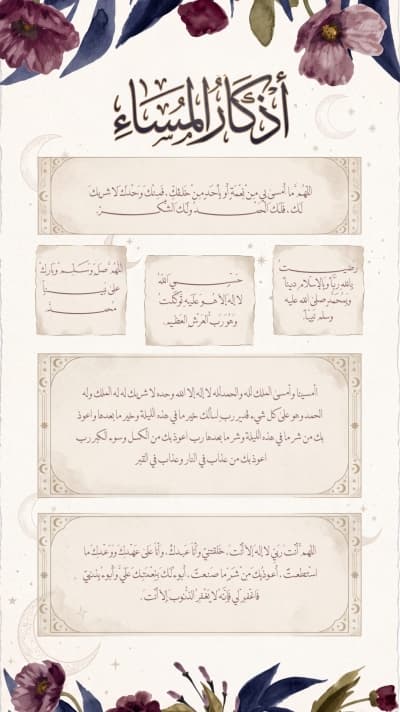 أذكار المساء
اللهم ما أمسى بي من نعمة أو بأحد من خلقك، فمنك وحدك لا شريك
لك، فلك الحمد ولك الشكر.
رضيت
بالله رباً وبالإسلام ديناً
وبمحمد صلى الله عليه
وسلم نبياً.
حسبي الله
لا إله إلا هو عليه توكلت
وهو رب العرش العظيم.
اللهم صل وسلم وبارك
على نبينا
محمد
أمسينا وأمسى الملك لله والحمد لله لا إله إلا الله وحده لا شريك له له الملك وله
الحمد وهو على كل شيء قدير رب أسألك خير ما في هذه الليلة وخير ما بعدها وأعوذ
بك من شر ما في هذه الليلة وشر ما بعدها رب أعوذ بك من الكسل وسوء الكبر رب
أعوذ بك من عذاب في النار وعذاب في القبر
اللهم أنت ربي لا إله إلا أنت، خلقتني وأنا عبدك، وأنا على عهدك ووعدك ما
استطعت، أعوذ بك من شر ما صنعت، أبوء لك بنعمتك علي وأبوء بذنبي
فاغفر لي فإنه لا يغفر الذنوب إلا أنت.